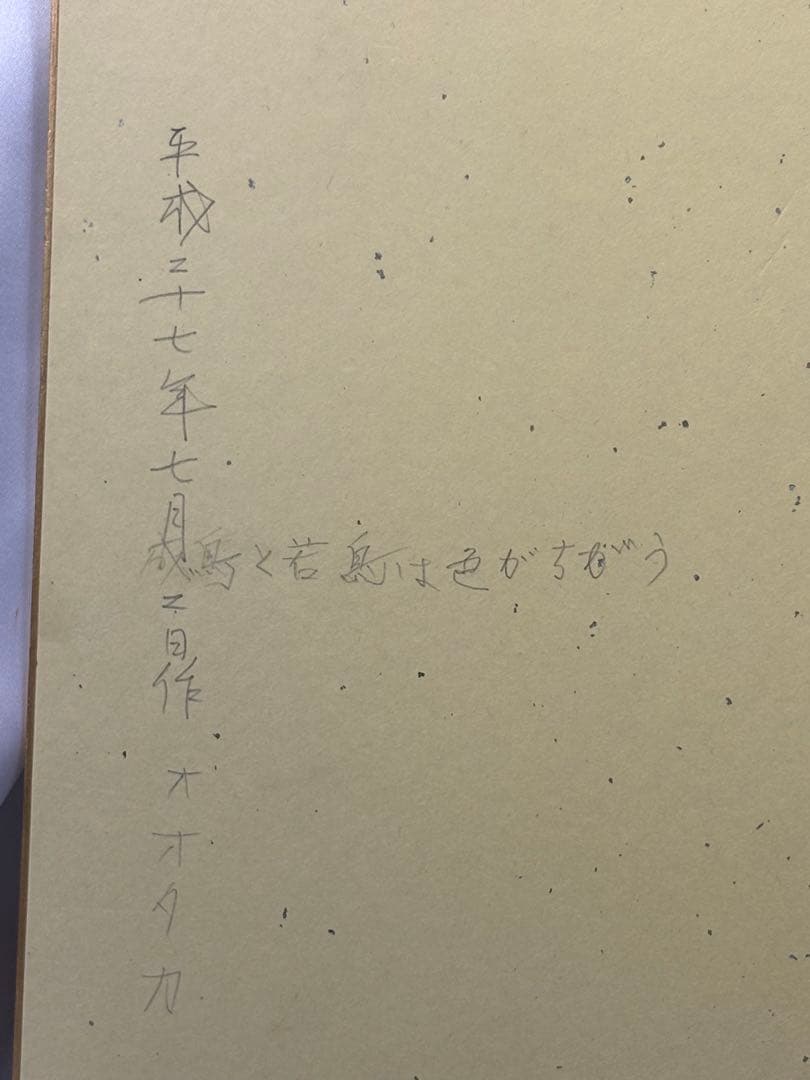 平成二十七年七月二日作 オオタカ
成鳥と若鳥は色がちがう.